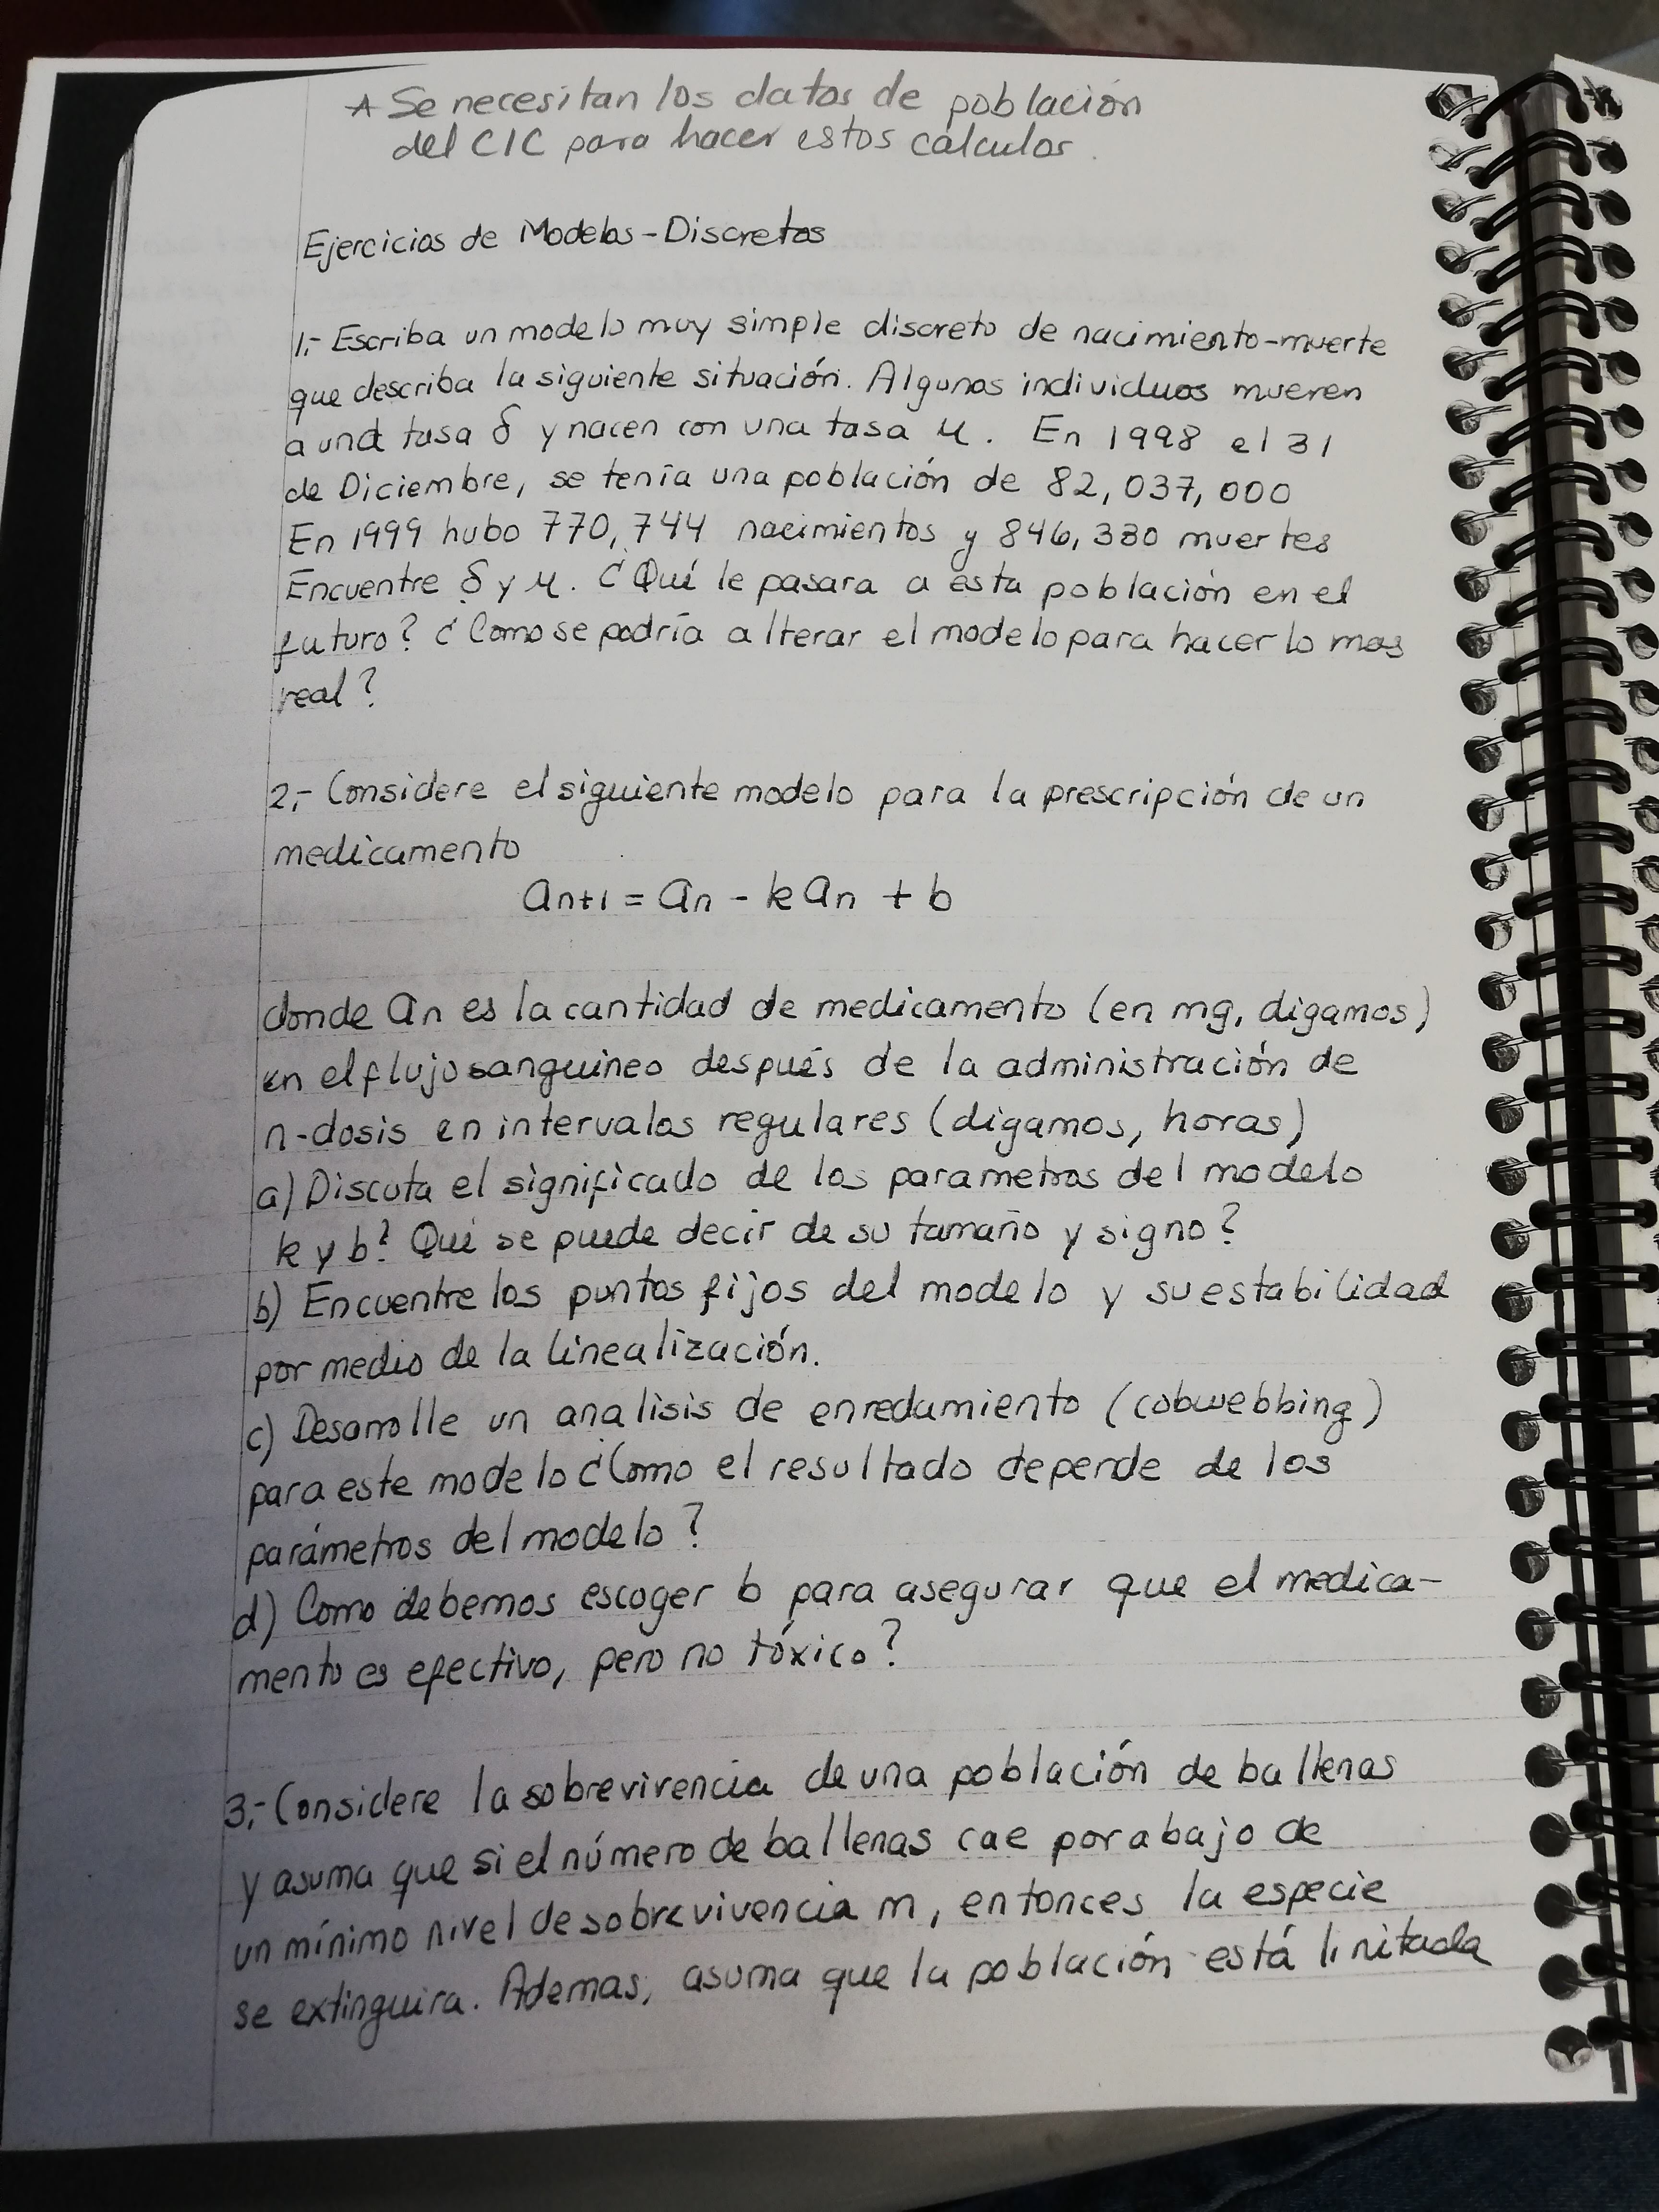 * Se necesitan los datos de población
del CIC para hacer estos cálculos.
Ejercicios de Modelos-Discretos
1.- Escriba un modelo muy simple discreto de nacimiento-muerte
que describa la siguiente situación. Algunos individuos mueren
a una tasa δ y nacen con una tasa μ. En 1998 el 31
de Diciembre, se tenía una población de 82,037,000
En 1999 hubo 770,744 nacimientos y 846,330 muertes
Encuentre δ y μ. ¿Qué le pasara a esta población en el
futuro? ¿Como se podría alterar el modelo para hacerlo mas
real?
2.- Considere el siguiente modelo para la prescripción de un
medicamento
an+1 = an - k an + b
donde an es la cantidad de medicamento (en mg, digamos)
en el flujo sanguineo después de la administración de
n-dosis en intervalos regulares (digamos, horas)
a) Discuta el significado de los parametros del modelo
k y b? Qué se puede decir de su tamaño y signo?
b) Encuentre los puntos fijos del modelo y su estabilidad
por medio de la linealización.
c) Desarrolle un analisis de enredamiento (cobwebbing)
para este modelo ¿Como el resultado depende de los
parámetros del modelo?
d) Como debemos escoger b para asegurar que el medica-
mento es efectivo, pero no tóxico?
3.- Considere la sobrevivencia de una población de ballenas
y asuma que si el número de ballenas cae por abajo de
un mínimo nivel de sobrevivencia m, entonces la especie
se extinguira. Ademas, asuma que la población está limitada